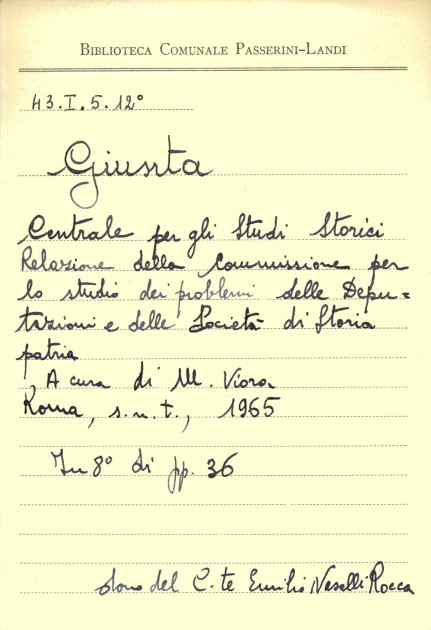 BIBLIOTECA COMUNALE PASSERINI-LANDI
43.I.5.12°
Giunta
Centrale per gli Studi Storici
Relazione della Commissione per
lo studio dei problemi delle Depu=
tazioni e delle Società di Storia
patria
, A cura di M. Viora
Roma, s.n.t., 1965
In 8° di pp. 36
dono del C.te Emilio Naselli Rocca